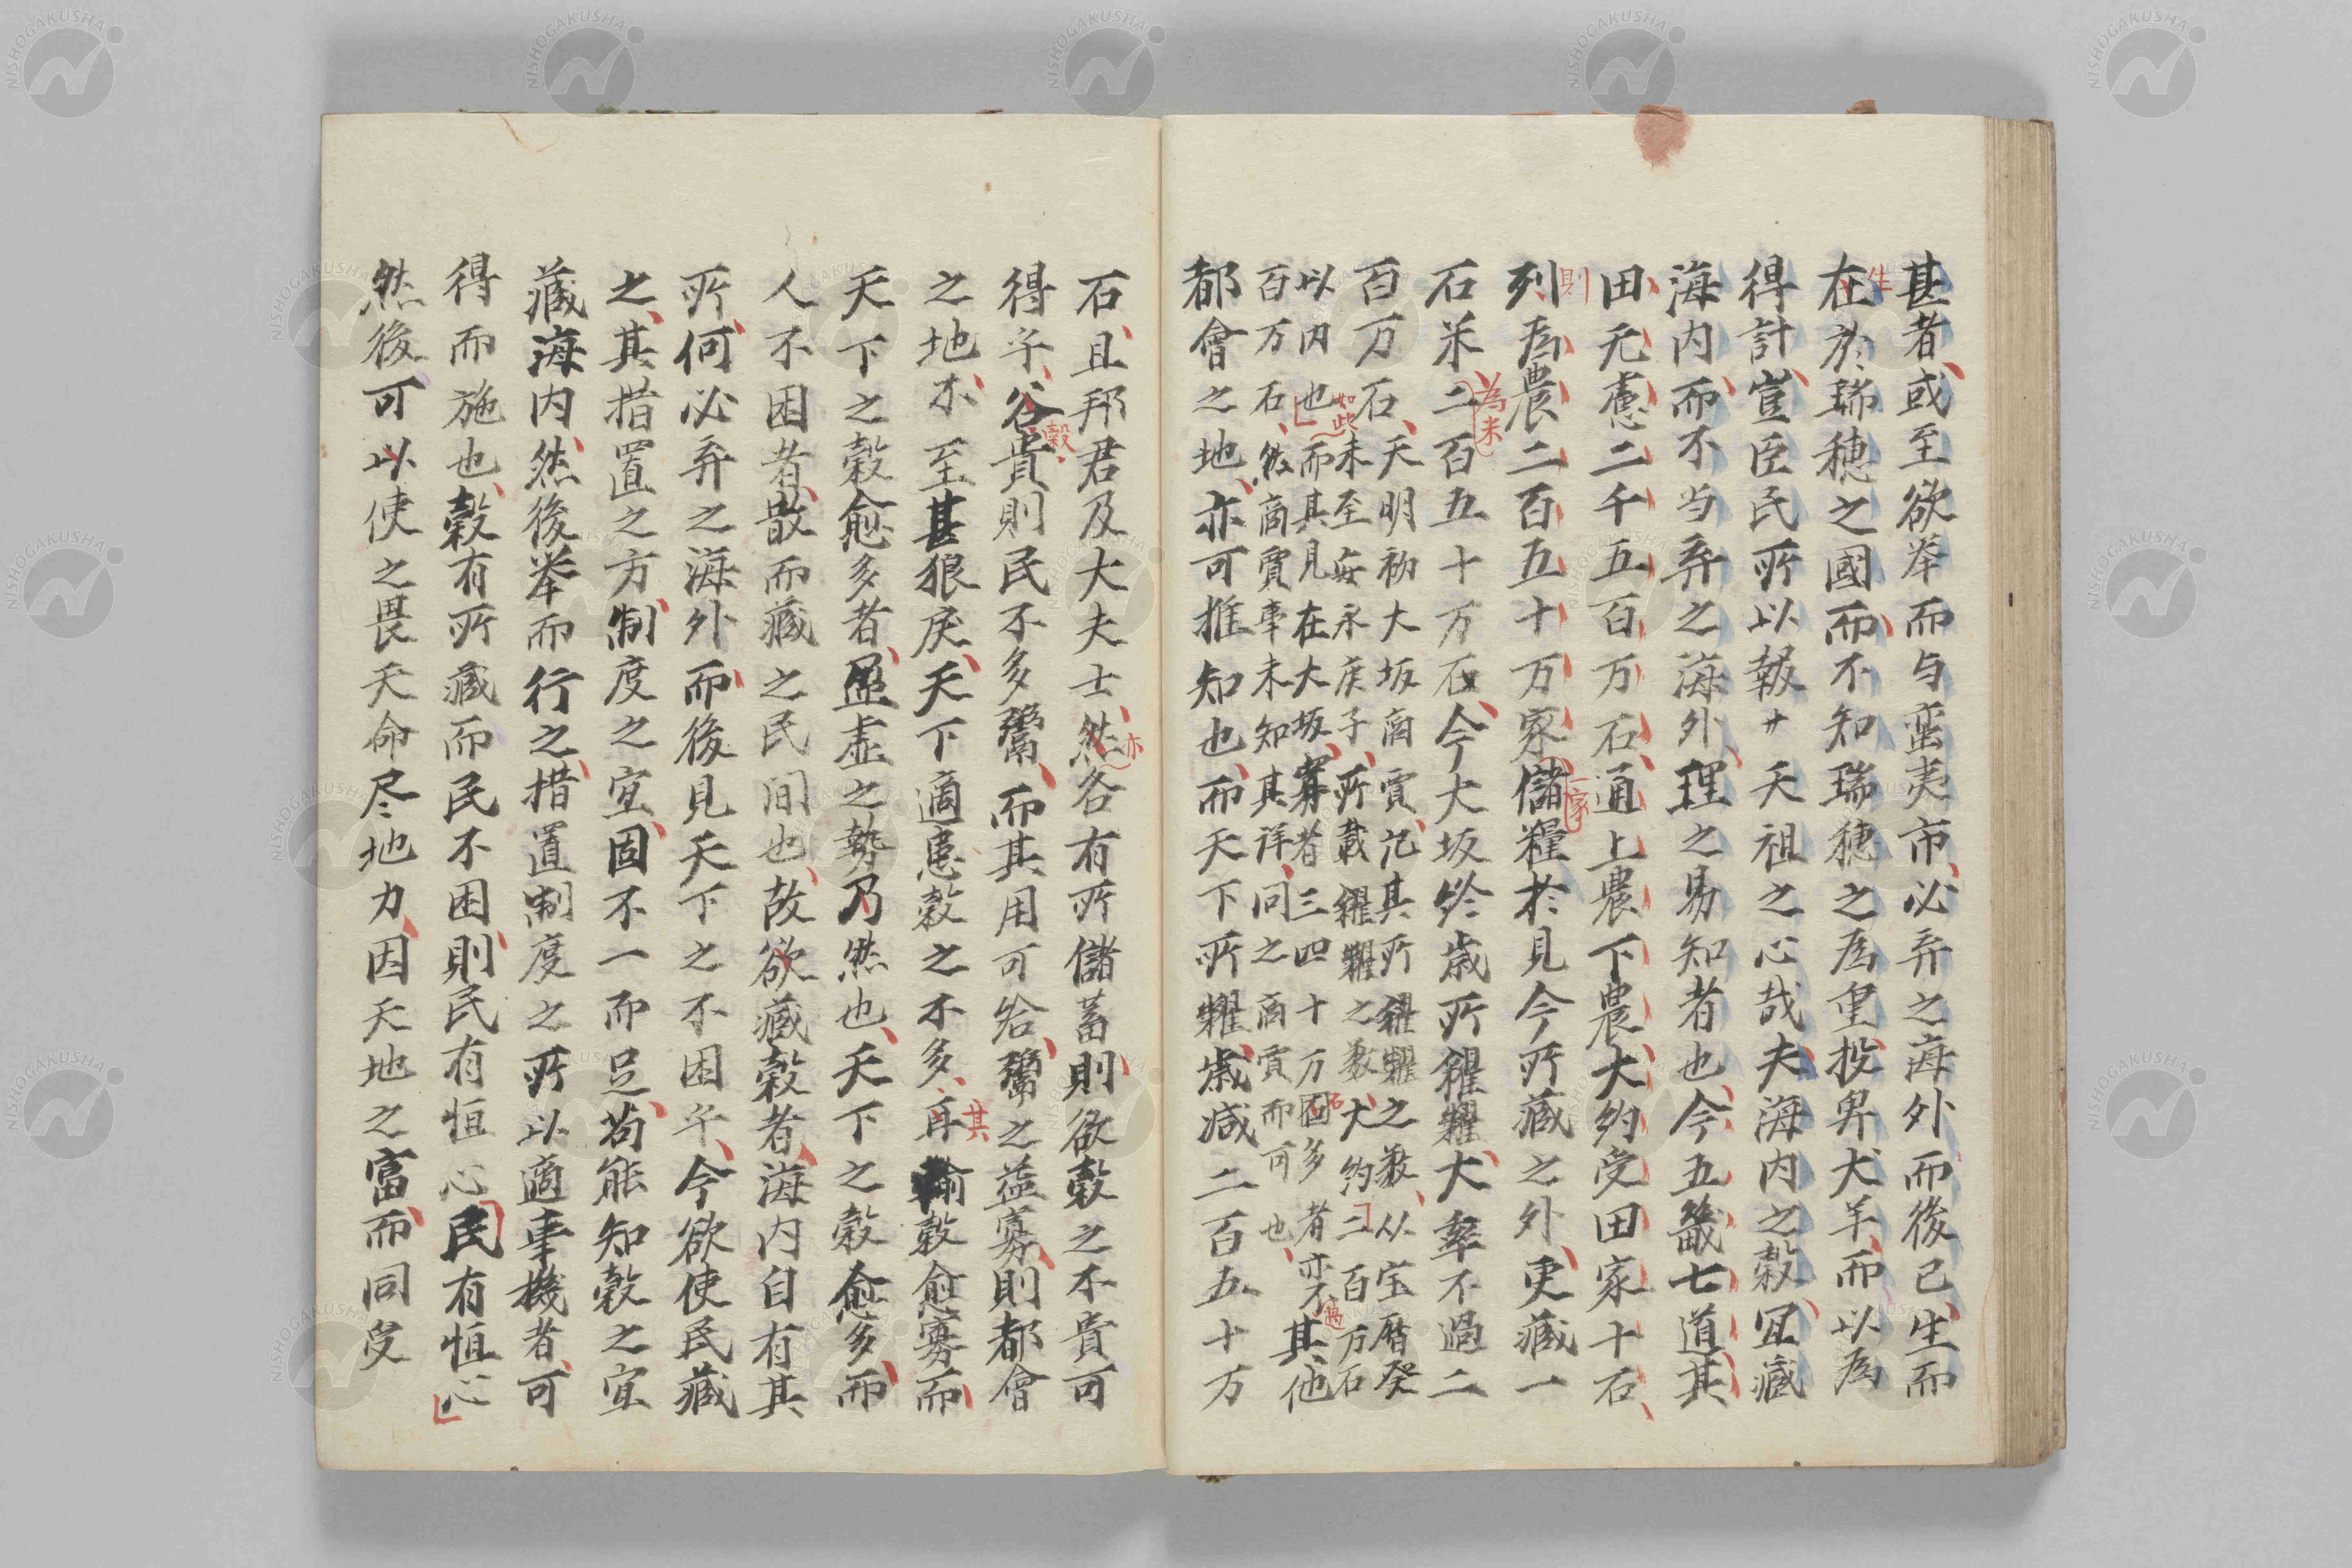 甚者、或至欲举而与蛮夷市、必弃之海外而後已、生而
在於瑞穂之國、而不知瑞穂之為重、投畀犬羊、而以為
得計、豈臣民所以報〻天祖之心哉、夫海内之穀、宜藏
海内、而不与弃之海外、理之易知者也、今五畿七道、其
田无慮二千五百万石、通上農下農、大約受田家十石、
列為農二百五十万家、儲糧於見今所藏之外、更藏一
石米、二百五十万石、今大坂終歳所糴糶、大率不過二
百万石、
天明初大坂商賈、記其所糴糶之数、从宝曆癸
未至安永庚子、所載糴糶之数、大約二百万石
以内也、而其見在大坂、寡者三四十万、多者亦不
百万石、然商賈事未知其詳、同之商賈而可也、
其他
都會之地、亦可推知也、而天下所糶歳減二百五十万
石、且邦君及大夫士、然各有所儲蓄、則欲穀之不貴可
得乎、谷貴則民不多鬻、而其用可給、鬻之益寡、則都會
之地、亦至甚狼戾、天下適患穀之不多、再輸穀愈寡而
天下之穀愈多者、盈虚之勢乃然也、天下之穀愈多、而
人不困者、散而藏之民間也、故欲藏穀者、海内自有其
所、何必弃之海外、而後見天下之不困乎、今欲使民藏
之、其措置之方、制度之宜、固不一而足、苟能知穀之宜
藏海内、然後举而行之、措置制度之所以適事機者、可
得而施也、穀有所藏而民不困、則民有恒心民有恒心
然後可以使之畏天命尽地力、因天地之富、而同受
生
則
為米
一家
如此
石
過
亦
穀
其
NISHOGAKUSHA